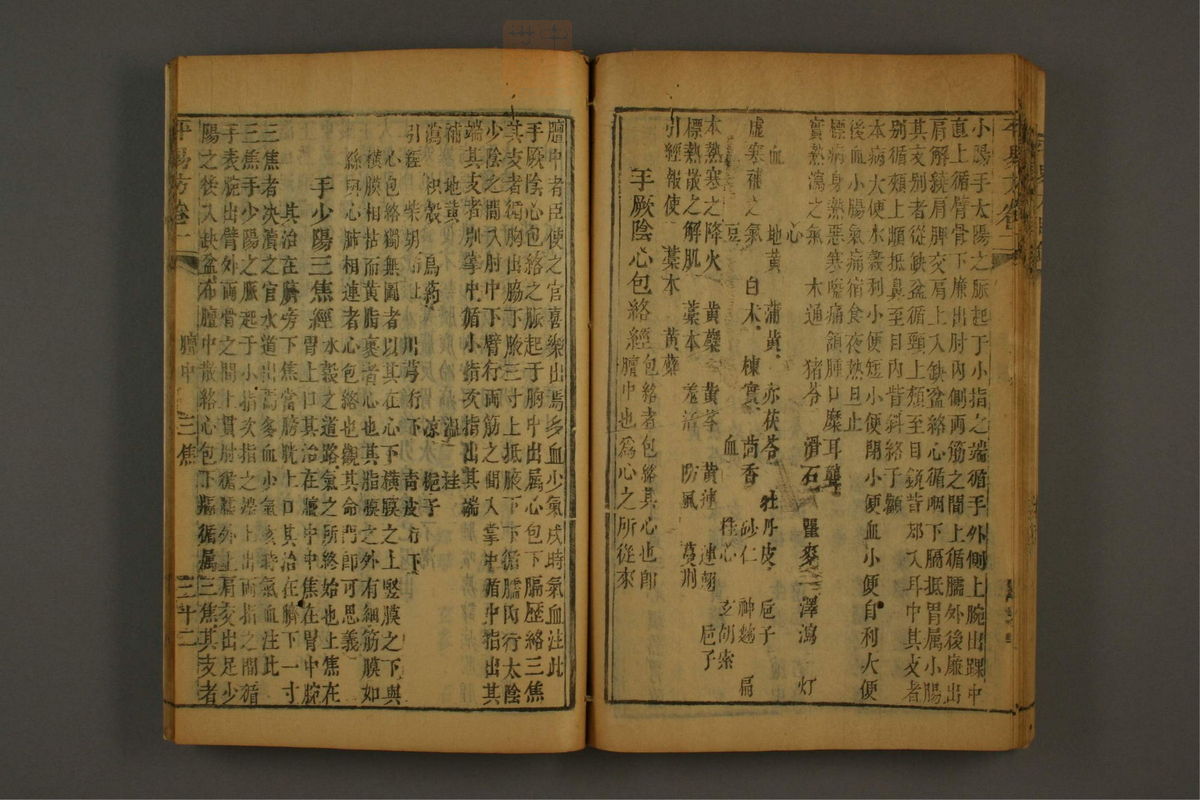 小腸手太陽之脈起于小指之端循手外側上腕出踝中
直上循臂骨下廉出肘內側兩筋之間上循臑外後廉出
肩解繞肩胛交肩上入缺盆絡心循咽下膈抵胃属小腸
其支別者從缺盆循頸上頰至目銳眥却入耳中其支者
別循頰上䪼抵鼻至目內眥斜絡于顴
本病大便水穀利小便短小便閉小便血小便自利大便
後血小腸氣痛宿食夜熱旦止
標病身熱惡寒嗌痛頷腫口糜耳聾
實熱瀉之氣 木通 猪苓 滑石 瞿麥 澤瀉 灯
心
血 地黃 蒲黃 赤茯苓 牡丹皮 巵子
虛寒補之氣 白术 楝實 茴香 砂仁 神麯 扁
豆 血 桂心 玄胡索
本熱寒之降火 黃蘗 黃芩 黃連 連翹 巵子
標熱散之解肌 藁本 羌活 防風 蔓荆
引經報使 藁本 黃蘗
手厥陰心包絡經 包絡者包絡其心也即
膻中也爲心之所從來
膻中者臣使之官喜樂出焉多血少氣戌時氣血注此
手厥陰心包絡之脈起于胸中出属心包下膈歷絡三焦
其支者循胸出脇下腋三寸上抵腋下下循臑內行太陰
少陰之間入肘中下臂行兩筋之間入掌中循中指出其
端其支者別掌中循小指次指出其端
補 地黃 溫 桂
瀉 枳殼 烏藥 凉 梔子
引經 柴胡 川芎行 青皮行下
心包絡獨無圖者以其在心下橫膜之上竪膜之下與
橫膜相粘而黃脂裹者心也其脂膜之外有細筋膜如
絲與心肺相連者心包絡也觀其命門即可思義
手少陽三焦經 水穀之道路氣之所終始也上焦在
胃上口其治在膻中中焦在胃中脘
其治在臍旁下焦當膀胱上口其治在臍下一寸
三焦者决瀆之官水道出焉多血少氣亥時氣血注此
三焦手少陽之脈起于小指次指之端上出兩指之間循
手表腕出臂外兩骨之間上貫肘循臑外上肩交出足少
陽之後入缺盆布膻中散絡心包下膈循属三焦其支者
平易方卷二 膻中 三焦 三十二